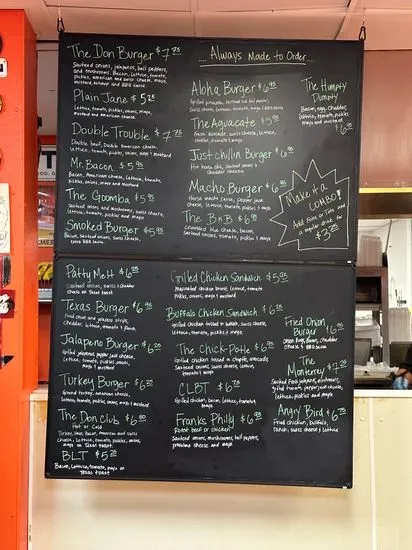 ... Always Made to Order ...
The Don Burger $7.75
Sauteed onions, jalapenos, bell peppers,
and mushrooms. Bacon, lettuce, tomato,
pickles, american and swiss cheese, mayo,
mustard, ketchup and BBQ sauce
Plain Jane $5.25
Lettuce, tomato, pickles, onions, mayo,
mustard and american cheese.
Double Trouble $7.75
Double beef, Double American cheese,
lettuce, tomato, pickles, onions, mayo & mustard
Mr. Bacon $5.95
Bacon, American cheese, lettuce, tomato,
pickles, onions, mayo and mustard
The Goomba $5.95
Sauteed onions and mushrooms, swiss cheese,
lettuce, tomato, pickles and mayo
Smoked Burger $5.95
Bacon, Sauteed onions, swiss cheese,
extra BBQ sauce.
Aloha Burger $6.95
Grilled pineapple,
swiss cheese, lettuce, tomato, mayo & BBQ sauce
The Aguacate $5.95
Fresh avocado, swiss cheese, lettuce,
tomato & mayo
Just chilin Burger $6.95
Hot texas chili, sauteed onions &
cheddar cheese
Macho Burger $6
House macho sauce, pepper jack
cheese, lettuce, tomato, pickles & mayo
The BnB $6
Crumbled blue cheese, bacon,
sauteed onions, tomato, pickle & mayo
The Humpty
Dumpty
Bacon, egg, cheddar,
lettuce, tomato, pickles
mayo and mustard.
$6.95
Make it a
COMBO!
Add fries or Tots and
a regular drink for
$3.25
Patty Melt $6.25
Sauteed onions, swiss & cheddar
cheese on Texas toast
Texas Burger $6.95
Fried onion and jalapeno strips,
cheddar, lettuce, tomato & ranch.
Jalapeno Burger $6.25
Grilled jalapenos, pepper jack cheese,
lettuce, tomato, pickles, onions,
mayo & mustard
Turkey Burger $6.25
Ground turkey, american cheese,
lettuce, tomato, pickles, onions, mayo & mustard
The Don Club $6.50
Hot or Cold
Turkey, ham, bacon, american and swiss
cheese, lettuce, tomato, pickles, onions,
mayo on Texas toast
BLT $5.25
Bacon, Lettuce, tomato, mayo on
Texas toast
Grilled Chicken Sandwich $5.95
Marinated chicken breast, lettuce, tomato
pickles, onions, mayo & mustard
Buffalo Chicken Sandwich $6.25
Grilled chicken tossed in buffalo, swiss cheese,
lettuce, tomato, pickles, onions & mayo
The Chick-Potle $6.95
Grilled chicken tossed in chipotle, avocado,
Sauteed onions, swiss cheese, lettuce,
tomato & mayo
CLBT $6.75
Grilled chicken, bacon, lettuce, tomato &
mayo
Franks Philly $6.95
Roast beef or chicken
Sauteed onions, mushrooms, bell peppers,
provolone cheese and mayo
Fried Onion
Burger $6
Onion Rings, Bacon, Cheddar
Cheese & BBQ sauce
The
Monterrey $7.25
Sauteed Fresh jalapenos, mushrooms,
grilled tomato, pepper jack cheese,
lettuce, pickles and mayo
Angry Bird $6.75
Fried chicken, buffalo,
ranch, swiss cheese & lettuce